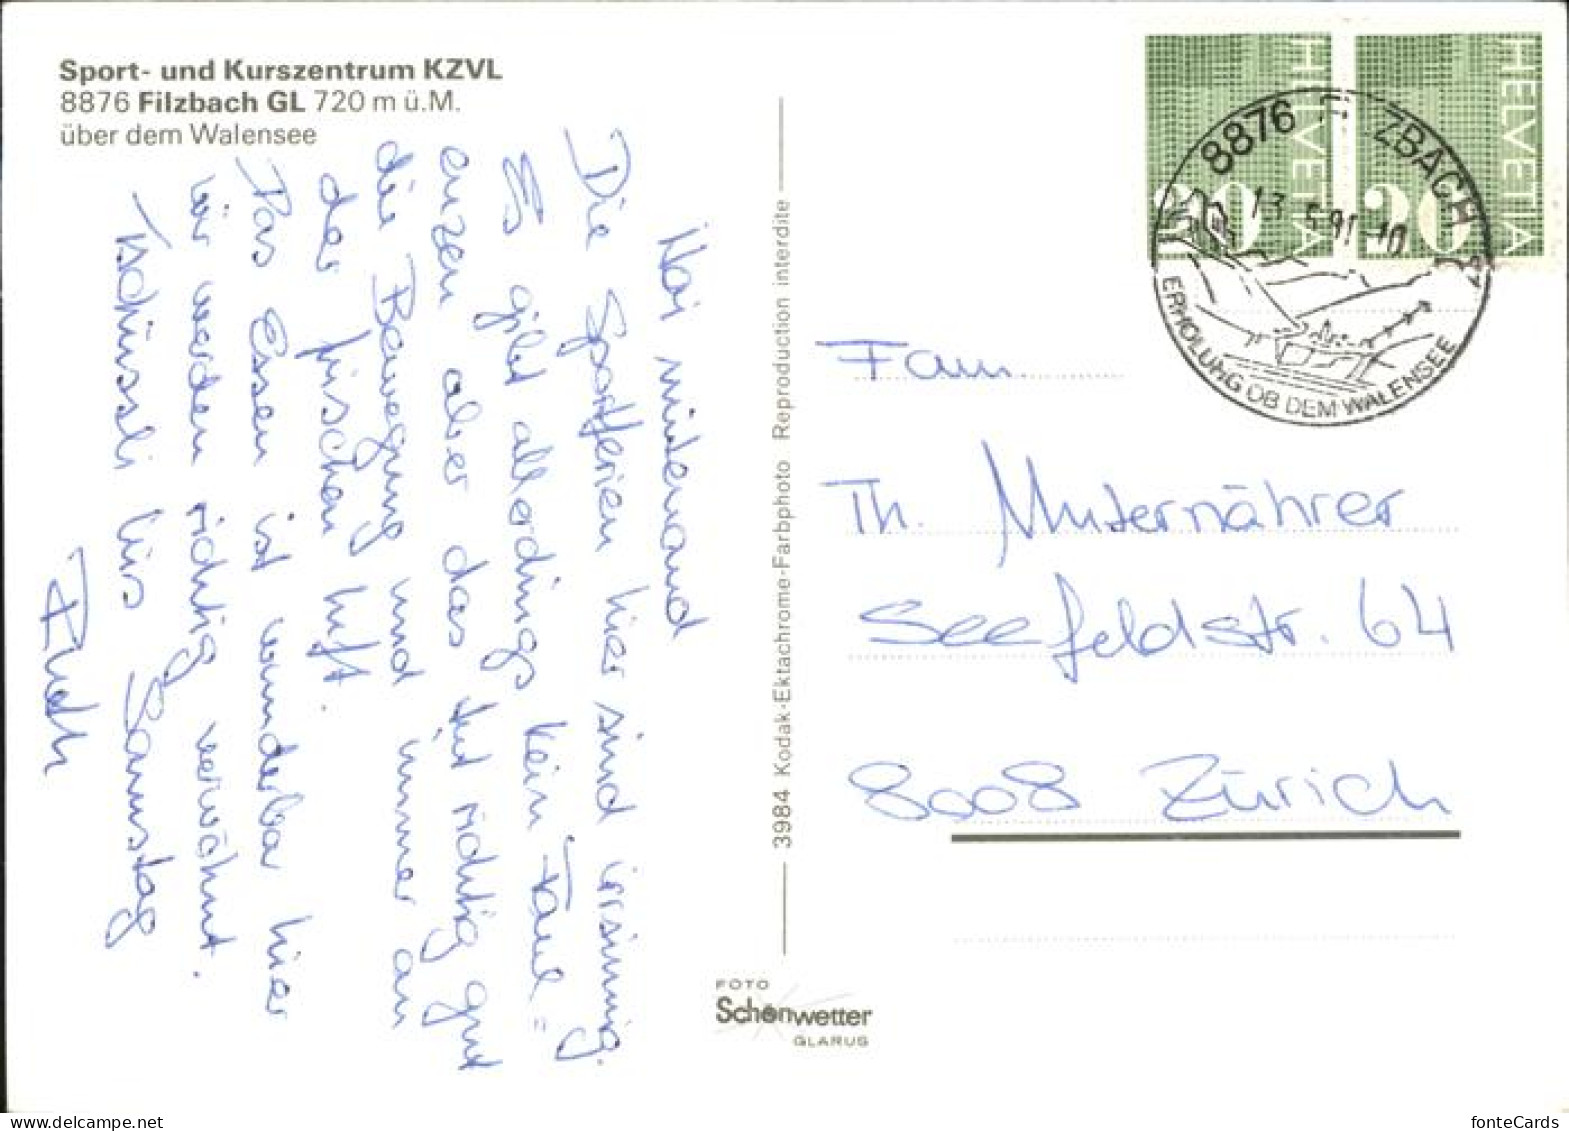 Sport- und Kurszentrum KZVL
8876 Filzbach GL 720 m ü.M.
über dem Walensee
Hoi mitenand
Die Sportferien hier sind irrsinnig.
Es gibt allerdings kein Faul=
enzen aber das tut richtig gut
die Bewegung und immer an
der frischen Luft.
Das Essen ist wunderbar hier
wir werden richtig verwöhnt.
Tschüssli bis Samstag
Ruth
3984 Kodak-Ektachrome-Farbphoto Reproduction interdite
FOTO
Schönwetter
GLARUS
HELVETIA
20
HELVETIA
20
8876 FILZBACH
13.5.91-10
ERHOLUNG OB DEM WALENSEE
Fam.
Th. Muternährer
Seefeldstr. 64
8008 Zürich
fonteCards